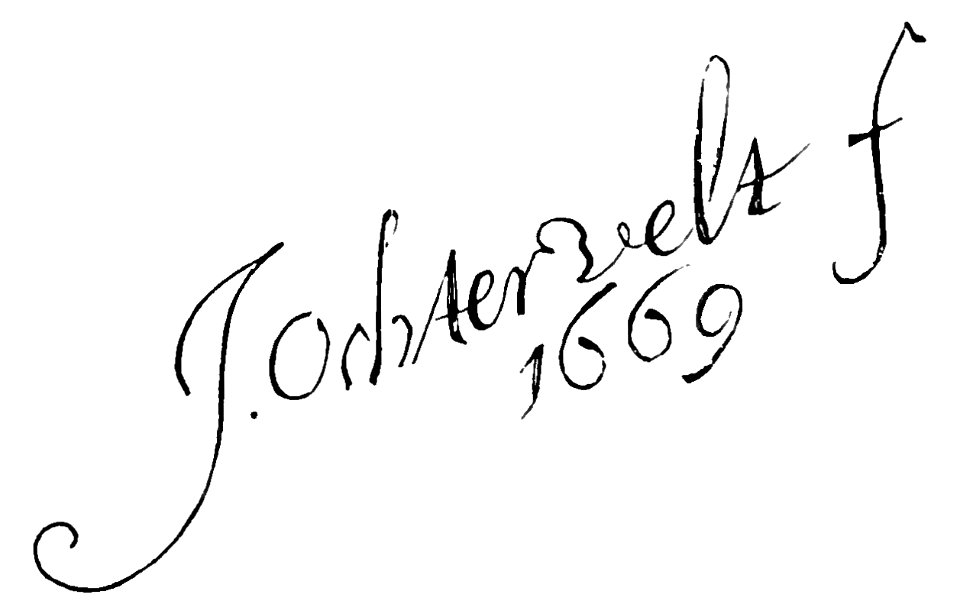 J. Ochtervelt f
1669